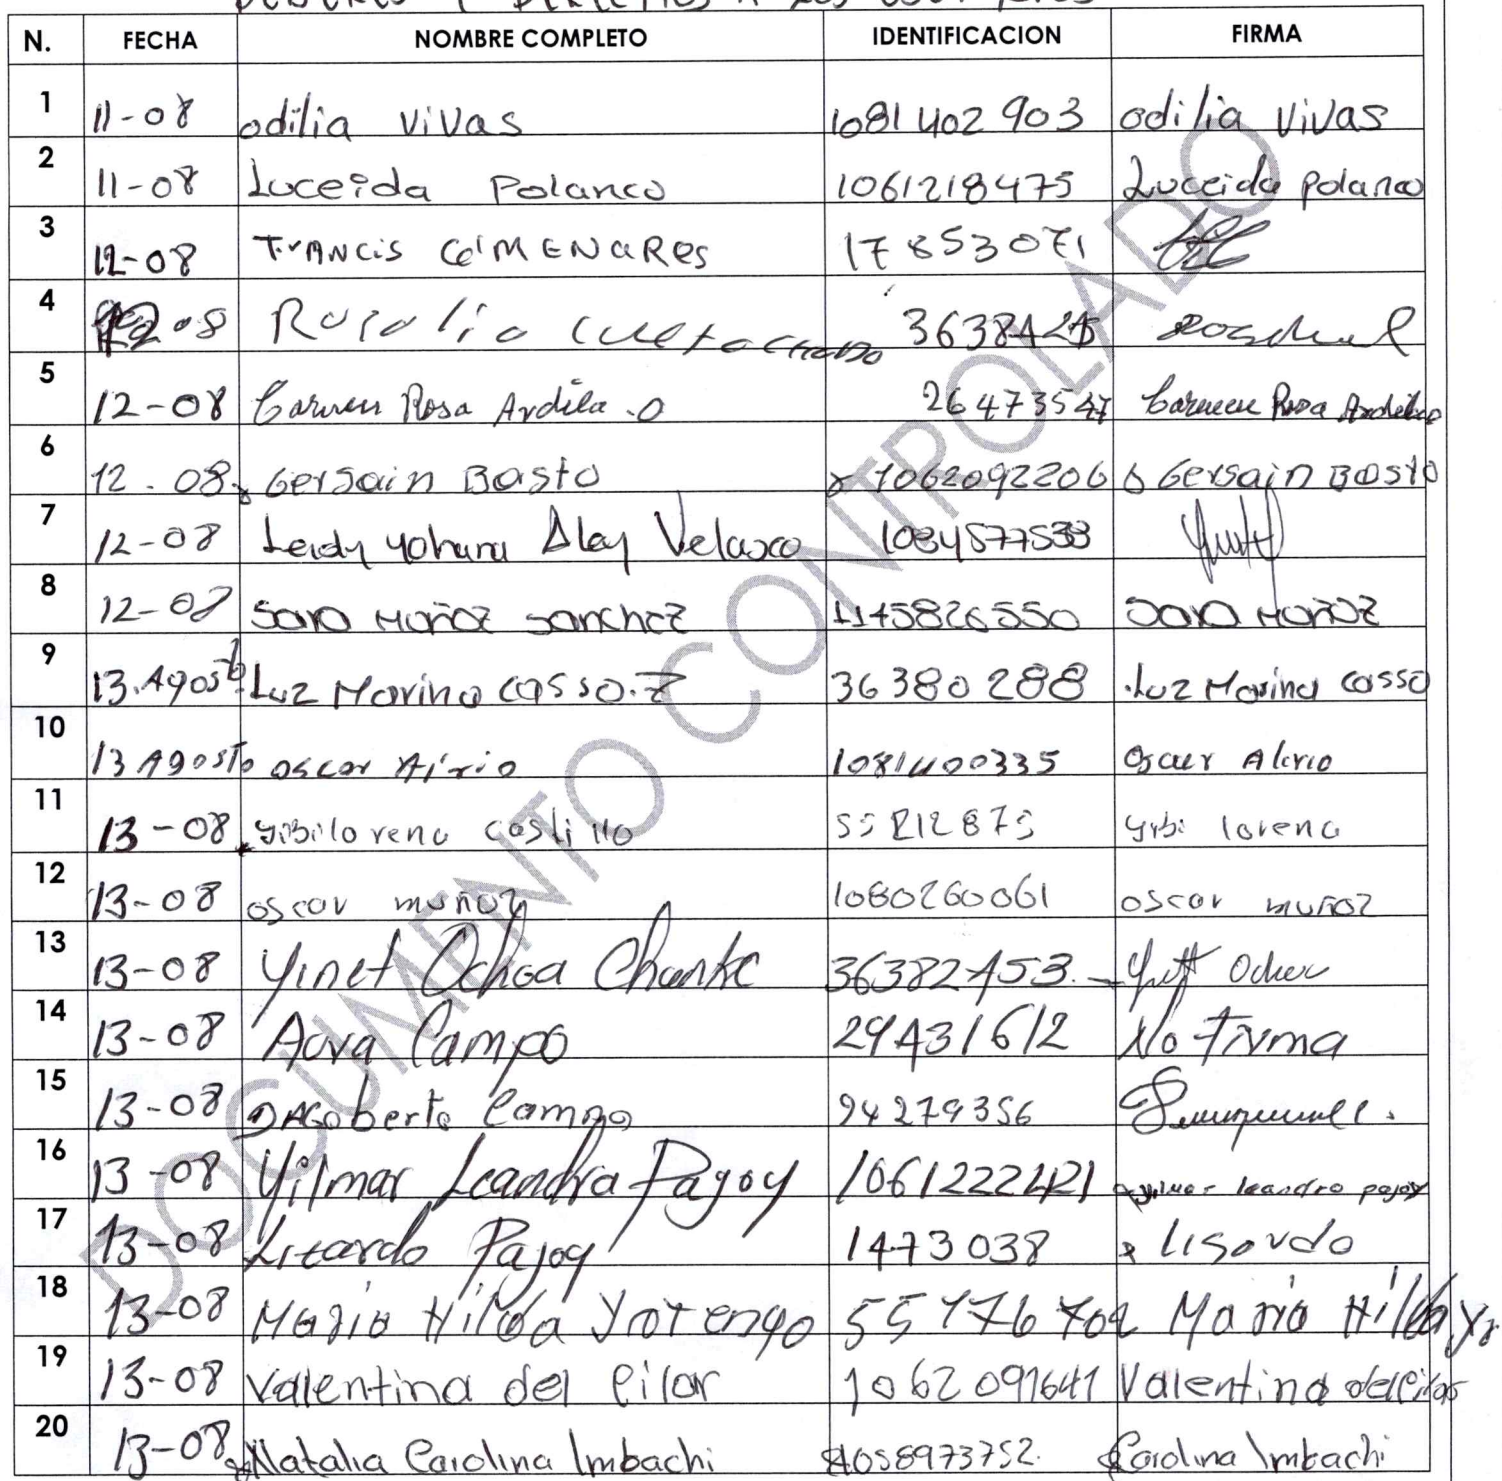 DEBERES Y DERECHOS A LOS
N. FECHA NOMBRE COMPLETO IDENTIFICACION FIRMA
1 11-08 odilia vivas 1081402903 odilia vivas
2 11-08 Luceida Polanco 1061218475 Luceida polanco
3 12-08 Francis ColMENaRes 17853071
4 12-08 Rosalia 3638425
5 12-08 Carmen Rosa Ardila .O 26473547 Carmen Rosa Ardila
6 12.08 Gersain Basto 1062092206 Gersain Basto
7 12-08 Leidy yohana Aley Velasco 1084577533
8 12-08 Sara Muñoz Sanchez 1145826550 Sara Muñoz
9 13.Agosto Luz Marina casso.Z 36380288 Luz Marina casso
10 13 Agosto oscar Alirio 1081400335 Oscar Alirio
11 13-08 yibi lorena castillo 55212875 yibi lorena
12 13-08 oscar muñoz 1080260061 oscar muñoz
13 13-08 Yinet Ochoa Chante 36382453.
14 13-08 Aura Campo 29431612 No Firma
15 13-08 DAGoberto Campo 94279356
16 13-08 Yilmar Leandro Pajoy 1061222421 yilmar leandro pajoy
17 13-08 Lisardo Pajoy 1473038 x lisardo
18 13-08 Maria Hilda Yotengo 55176702 Maria Hilda Yo
19 13-08 Valentina del Pilar 1062091641 Valentina del Pilar
20 13-08 Natalia Carolina Imbachi 1058973752. Carolina Imbachi
DOCUMENTO CONTROLADO